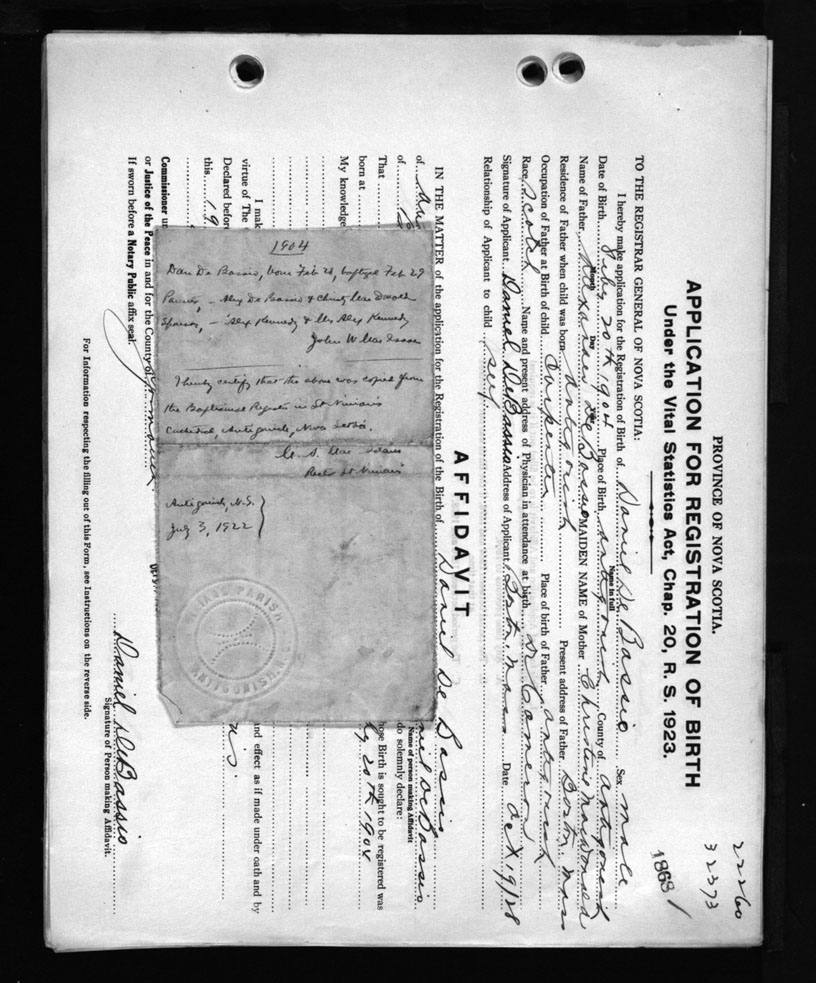 22260
32373
1868 1
PROVINCE OF NOVA SCOTIA.
APPLICATION FOR REGISTRATION OF BIRTH
Under the Vital Statistics Act, Chap. 20, R. S. 1923.
TO THE REGISTRAR GENERAL OF NOVA SCOTIA:
I hereby make application for the Registration of Birth of Daniel De Bassio Sex male
Name in full
Date of Birth Feb 20th 1904 Place of Birth Antigonish County of Antigonish
Month Day Year
Name of Father Alexander De Bassio MAIDEN NAME of Mother Christine MacDonald
Residence of Father when child was born Antigonish Present address of Father Boston, Mass
Occupation of Father at Birth of child Carpenter Place of birth of Father Antigonish
Race Scotch Name and present address of Physician in attendance at birth Dr Cameron
Signature of Applicant Daniel DeBassio Address of Applicant Boston, Mass Date Oct 19/28
Relationship of Applicant to child self
AFFIDAVIT
IN THE MATTER of the application for the Registration of the Birth of Daniel De Bassio
of
Name of person making Affidavit
of do solemnly declare:
That hose Birth is sought to be registered was
born at 20th 1904
My knowledge
I mak and effect as if made under oath and by
virtue of The
Declared before
this 19
Commissioner
or Justice of the Peace in and for the County of
If sworn before a Notary Public affix seal.
Daniel DeBassio
Signature of Person making Affidavit.
For Information respecting the filling out of this Form, see Instructions on the reverse side.
1904
Dan De Bassio, born Feb 20, baptized Feb 29
Parents, - Alex De Bassio & Christy MacDonald
Sponsors, - Alex Kennedy & Mrs Alex Kennedy
John W MacIsaac
I hereby certify that the above was copied from
the Baptismal Register in St Ninian's
Cathedral, Antigonish, Nova Scotia.
Rector St Ninian's
Antigonish, N.S.
July 3, 1922
PARISH
ANTIGONISH